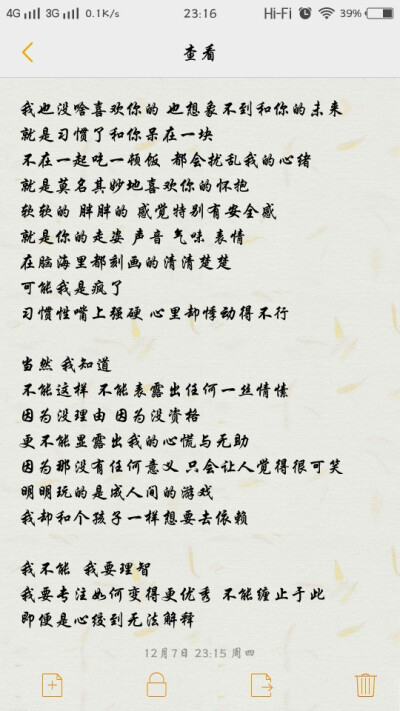 4G 3G 0.1K/s 23:16 Hi-Fi 39%
查看
我也没啥喜欢你的 也想象不到和你的未来
就是习惯了和你呆在一块
不在一起吃一顿饭 都会扰乱我的心绪
就是莫名其妙地喜欢你的怀抱
软软的 胖胖的 感觉特别有安全感
就是你的走姿 声音 气味 表情
在脑海里都刻画的清清楚楚
可能我是疯了
习惯性嘴上强硬 心里却悸动得不行
当然 我知道
不能这样 不能表露出任何一丝情愫
因为没理由 因为没资格
更不能显露出我的心慌与无助
因为那没有任何意义 只会让人觉得很可笑
明明玩的是成人间的游戏
我却和个孩子一样想要去依赖
我不能 我要理智
我要专注如何变得更优秀 不能缠止于此
即便是心绞到无法解释
12月7日 23:15 周四